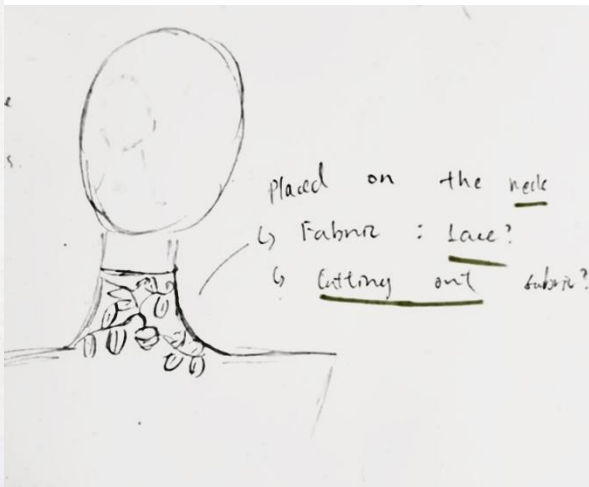 Placed on the neck
↳ Fabric : Lace?
↳ Cutting out fabric?